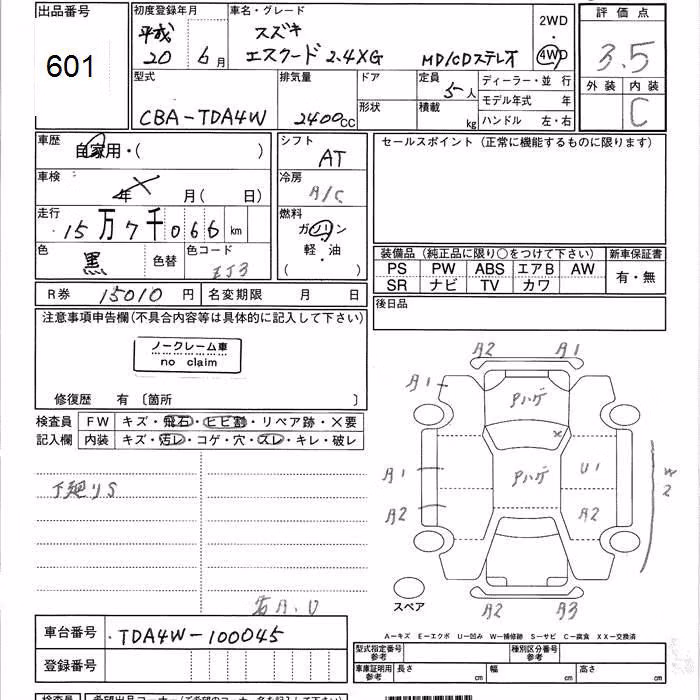 出品番号
601
初度登録年月
平成 20 6月
車名・グレード
スズキ
エスクード 2.4XG MD/CDステレオ
2WD
4WD
評価点
3.5
外装 内装
C
型式
CBA-TDA4W
排気量
2400cc
ドア
形状
定員
5人
積載
kg
ディーラー・並 行
モデル年式 年
ハンドル 左・右
車歴
自家用・( )
シフト
AT
車検
年 月( 日)
冷房
A/C
走行
15万7千066km
燃料
ガソリン
軽・油
( )
色
黒
色替
色コード
ZJ3
R券 15010円
名変期限 月 日
セールスポイント(正常に機能するものに限ります)
装備品(純正品に限り○をつけて下さい)
新車保証書
PS PW ABS エアB AW
有・無
SR ナビ TV カワ
後日品
注意事項申告欄(不具合内容等は具体的に記入して下さい)
ノークレーム車
no claim
修復歴 有〔箇所 〕
検査員 FW キズ・飛石・ヒビ割・リペア跡・×要
記入欄 内装 キズ・汚レ・コゲ・穴・スレ・キレ・破レ
下廻りS
A2 A1
A1 Pハゲ
×
A1 Pハゲ U1 W2
A2 A2
スペア
A2 A3
A-キズ E-エクボ U-凹み W-補修跡 S-サビ C-腐食 XX-交換済
車台番号 TDA4W-100045
登録番号
型式指定番号 参考
種別区分番号 参考
車庫証明用 参考
長さ cm
幅 cm
高さ cm
検査員
希望出品コーナー(ご希望のコーナー名を記入下さい)